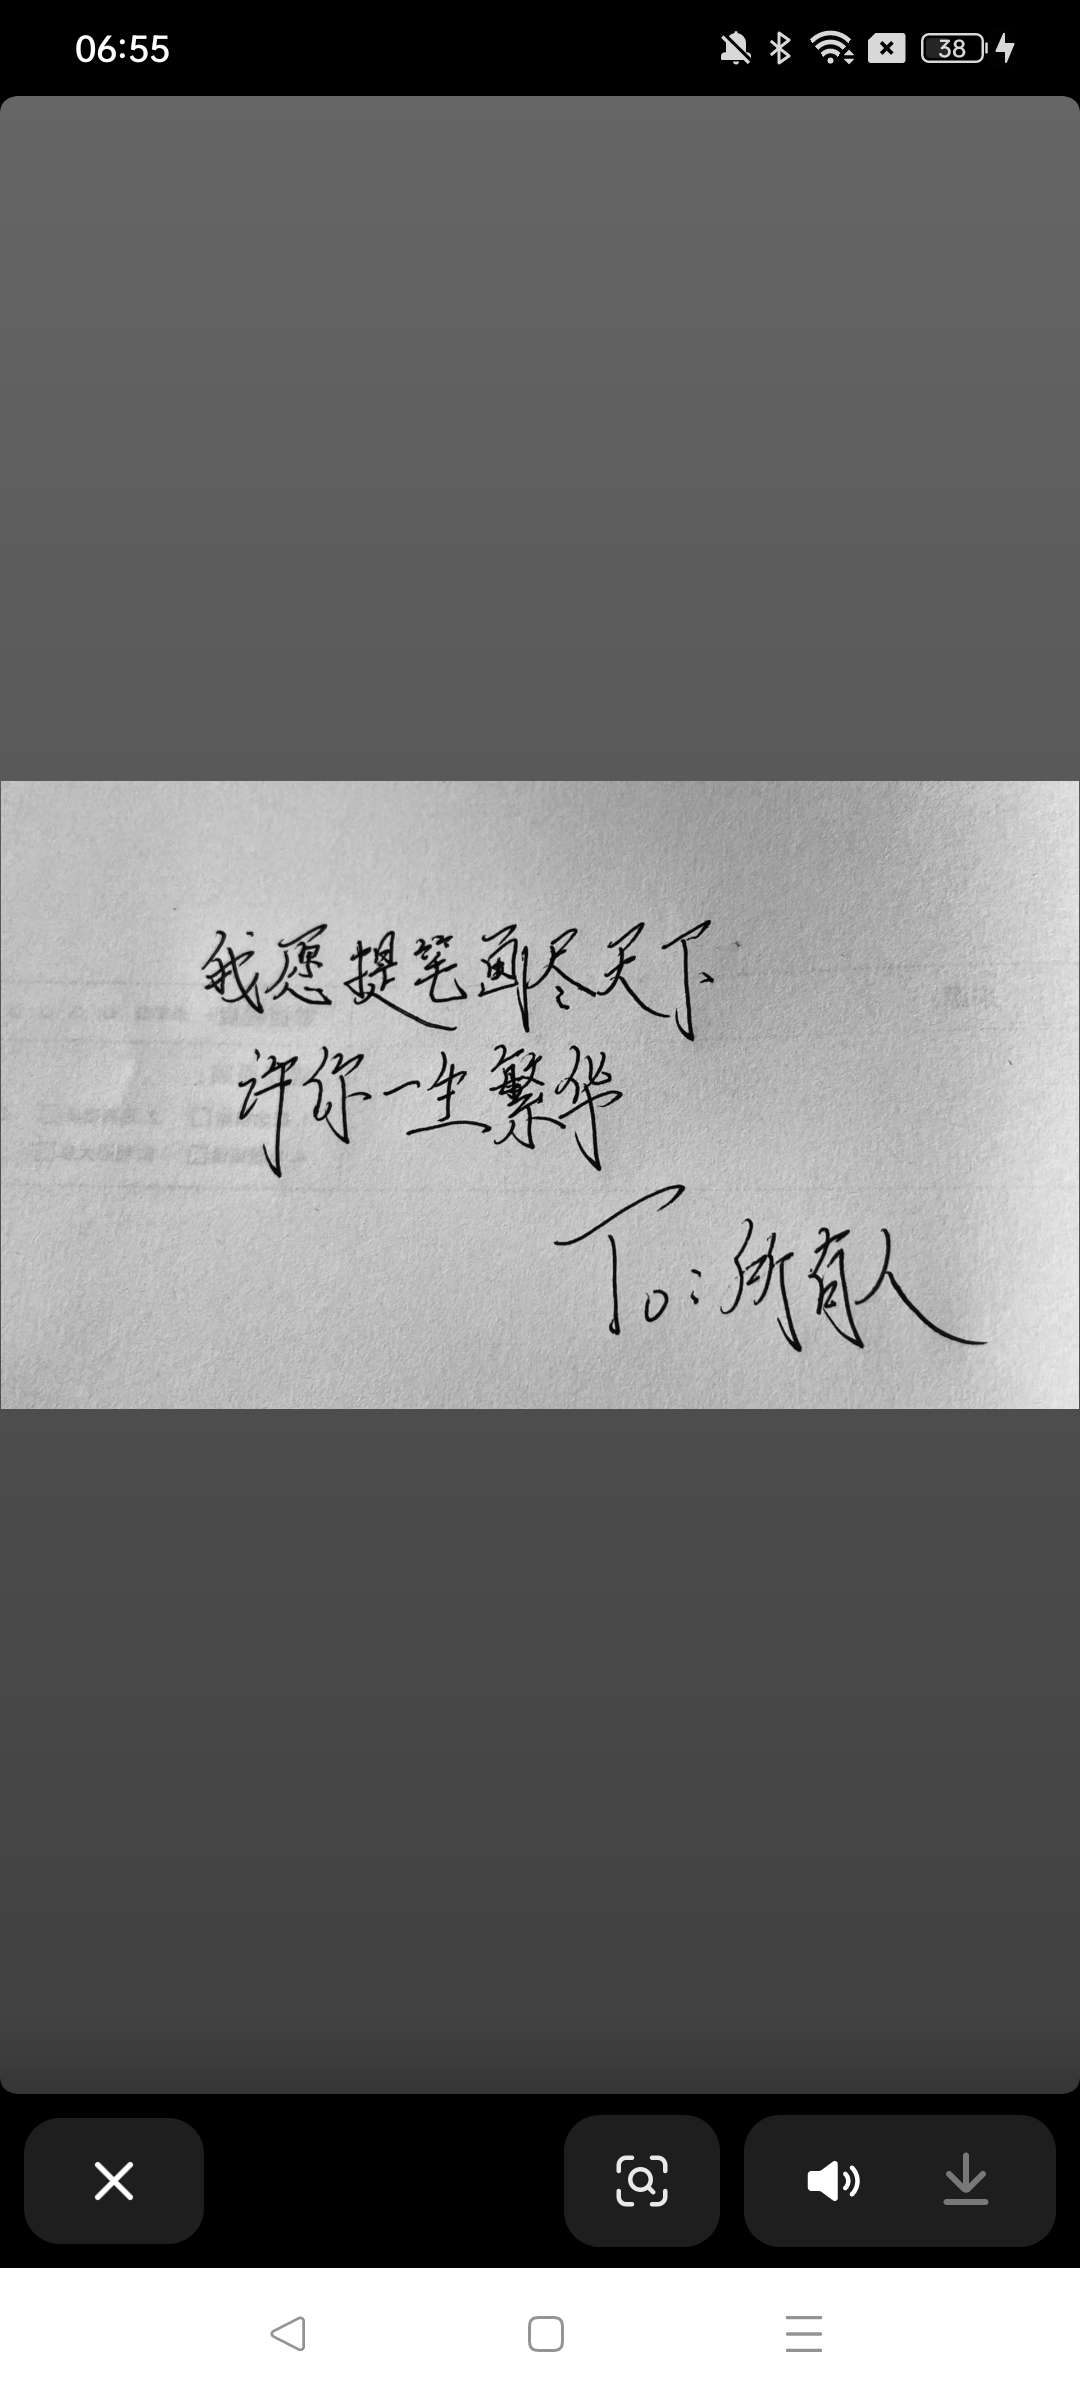 06:55
38
我愿提笔画尽天下
许你一生繁华
To:所有人